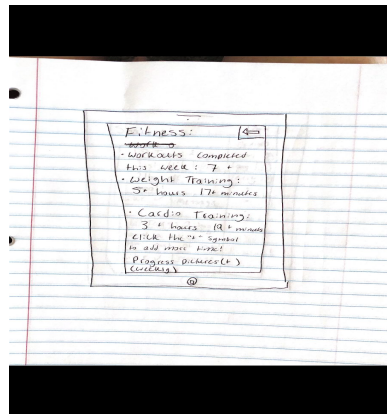 Fitness:
Work o
• Workouts completed
this week: 7 +
• Weight Training:
5+ hours 17+ minutes
• Cardio Training:
3 + hours 19 + minutes
click the "+" symbol
to add more time!
Progress pictures (+)
(weekly)